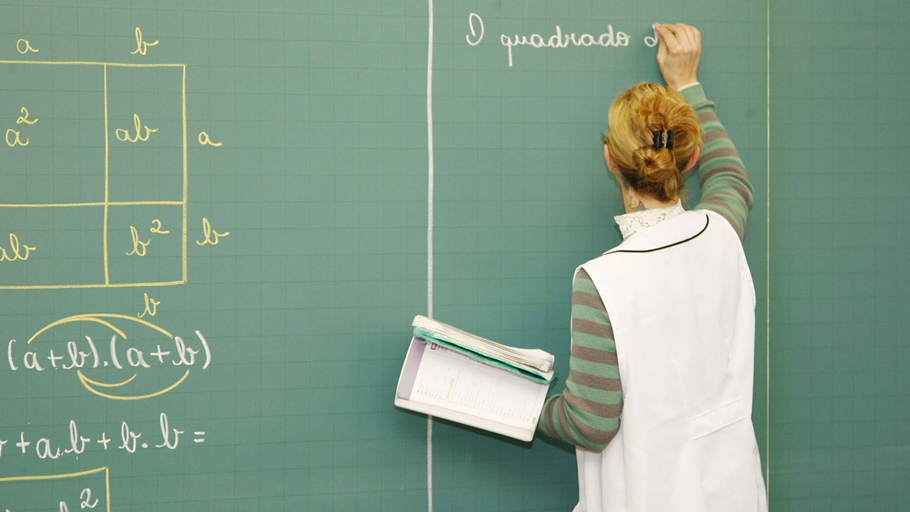 a b
a² ab a
ab b² b
b
(a+b).(a+b)
+a.b+b.b=
b²
O quadrado